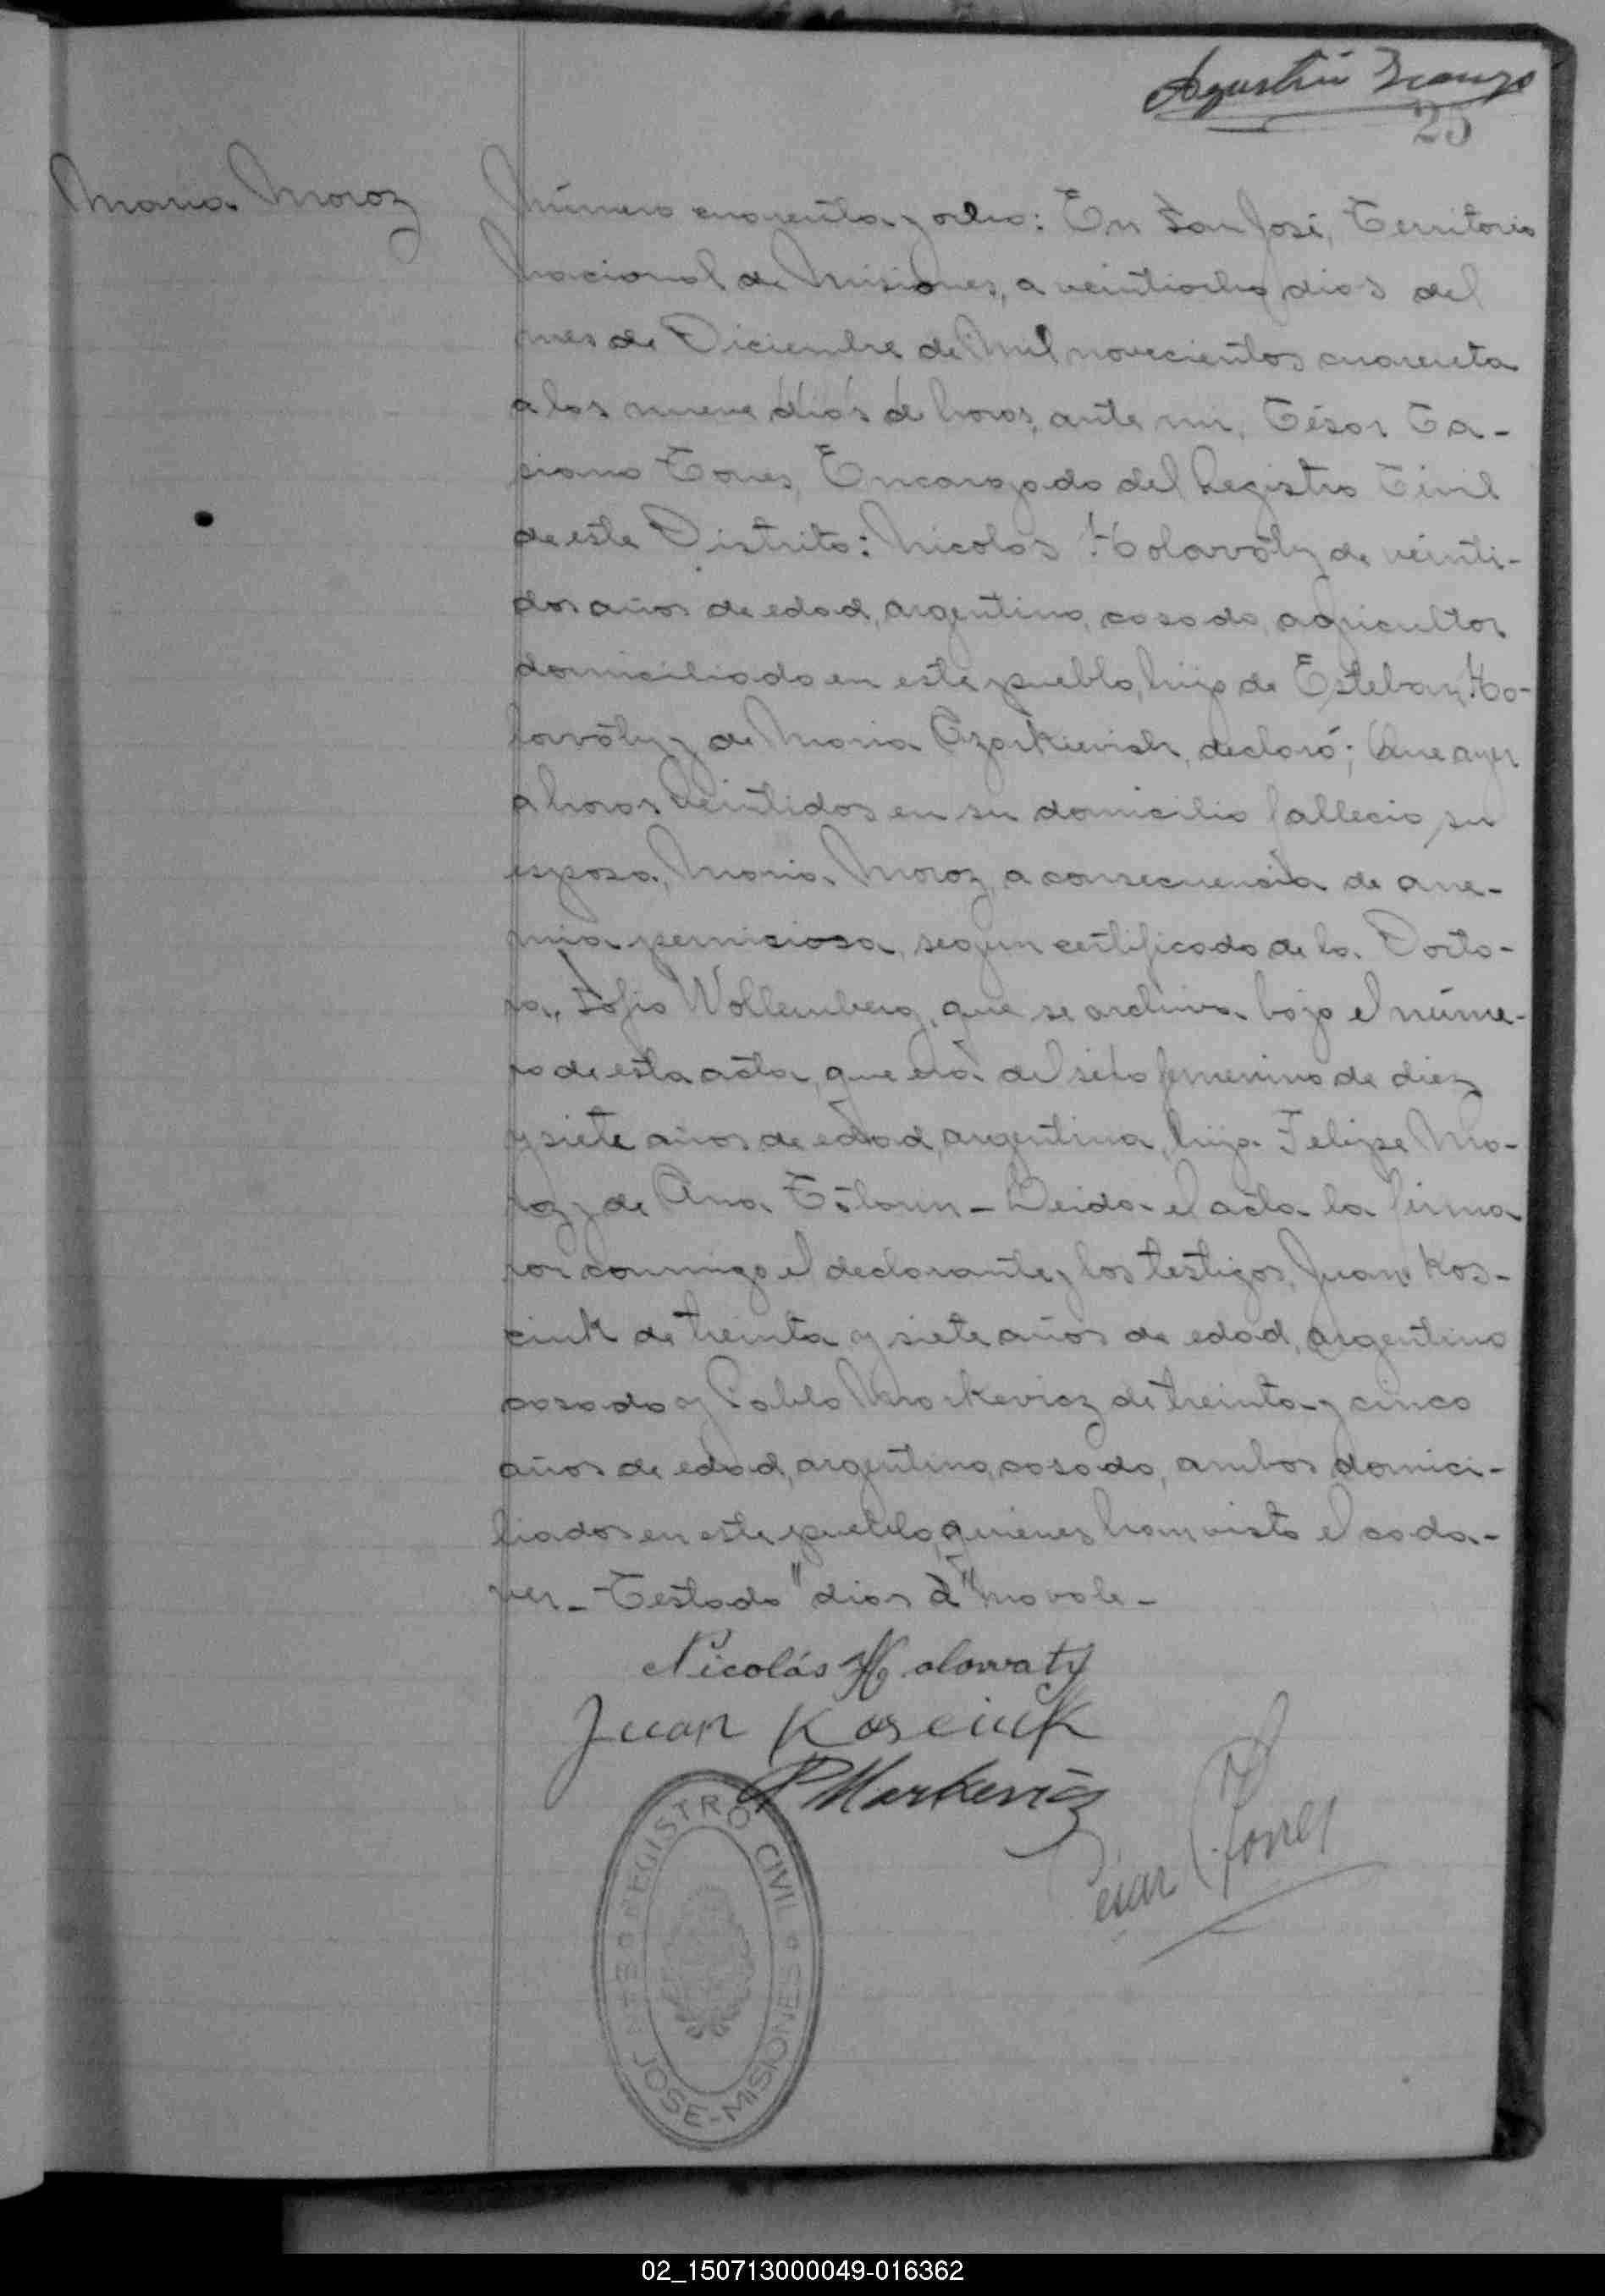 Agustín
25
Maria Moroz
Número cuarenta y ocho: En San José, Territorio
Nacional de Misiones, a veintiocho dias del
mes de Diciembre de Mil novecientos cuarenta
a las nueve dias d horas, ante mi, César Ca-
siano Torres, Encargado del Registro Civil
de este Distrito: Nicolas Holovaty de veinti-
dos años de edad, argentino, casado, agricultor
domiciliado en este pueblo, hijo de Esteban Ho-
lovaty y de Maria declaró; Que ayer
a horas veintidos en su domicilio fallecio su
esposa, Maria Moroz, a consecuencia de ane-
mia perniciosa, segun certificado de la Docto-
ra, Sofia Wollemberg, que se archiva bajo el núme-
ro de esta acta, que era del sexo femenino de diez
y siete años de edad, argentina, hija Felipe Mo-
roz y de Ana Leida el acta la firma
ron conmigo el declarante y los testigos, Juan Kos-
ciuk de treinta y siete años de edad, argentino
casado y Pablo Markevicz de treinta y cinco
años de edad, argentino, casado, ambos domici-
liados en este pueblo, quienes han visto el cada-
ver_ Testado "dias d" no vale_
Nicolás Holowaty
Juan Kosciuk
P Markevicz
César C. Torres
REGISTRO CIVIL
JOSE-MISIONES
02_150713000049-016362